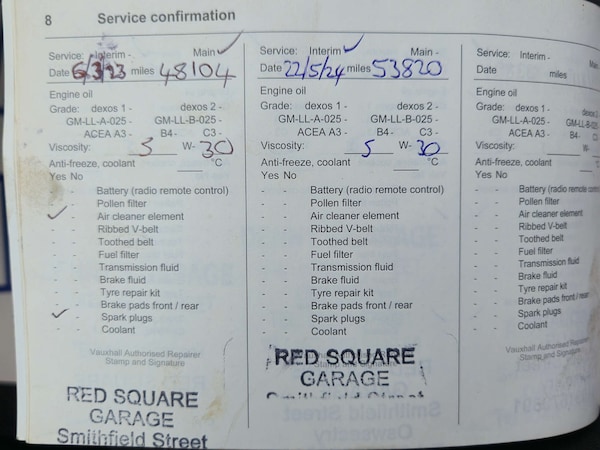 8 Service confirmation
Service: Interim - Main - ✓
Date 6/3/23 miles 48104
Engine oil
Grade: dexos 1 - dexos 2 -
GM-LL-A-025 - GM-LL-B-025 -
ACEA A3 - B4- C3 -
Viscosity: 5 W- 30
Anti-freeze, coolant °C
Yes No
- - Battery (radio remote control)
- - Pollen filter
✓ - Air cleaner element
- - Ribbed V-belt
- - Toothed belt
- - Fuel filter
- - Transmission fluid
- - Brake fluid
- - Tyre repair kit
- - Brake pads front / rear
✓ - Spark plugs
- - Coolant
Vauxhall Authorised Repairer
Stamp and Signature
RED SQUARE
GARAGE
Smithfield Street
Service: Interim - ✓ Main -
Date 22/5/24 miles 53820
Engine oil
Grade: dexos 1 - dexos 2 -
GM-LL-A-025 - GM-LL-B-025 -
ACEA A3 - B4- C3 -
Viscosity: 5 W- 30
Anti-freeze, coolant °C
Yes No
- - Battery (radio remote control)
- - Pollen filter
- - Air cleaner element
- - Ribbed V-belt
- - Toothed belt
- - Fuel filter
- - Transmission fluid
- - Brake fluid
- - Tyre repair kit
- - Brake pads front / rear
- - Spark plugs
- - Coolant
Stamp and Signature
RED SQUARE
GARAGE
Service: Interim -
Date miles
Engine oil
Grade: dexos 1 -
GM-LL-A-025 -
ACEA A3 -
Viscosity:
Anti-freeze, coolant
Yes No
- - Battery (radio remote
- - Pollen filter
- - Air cleaner element
- - Ribbed V-belt
- - Toothed belt
- - Fuel filter
- - Transmission fluid
- - Brake fluid
- - Tyre repair kit
- - Brake pads front / rear
- - Spark plugs
- - Coolant
Vauxhall Authorised Repairer
Stamp and Signature